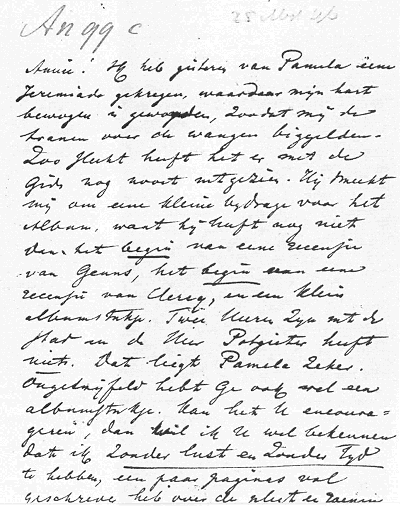 An 99 c
Amice! Ik heb gisteren van Pamela eene
Jeremiade gekregen, waardoor mijn hart
bewogen is geworden, zoodat mij de
tranen over de wangen biggelden.
Zoo slecht heeft het er met de
Gids nog nooit uitgezien. Hij smeekt
mij om eene kleine bydrage voor het
Album. want hij heeft nog niet
dan het begin van eene recensie
van Geuns, het begin van eene
recensie van Clercq, en een klein
albumstukje. Twee Heeren zyn uit de
stad en de Heer Potgieter heeft
niets. Dat liegt Pamela zeker.
Ongetwijfeld hebt Ge ook wel een
albumstukje. Kan het U encoura-
geren, dan wil ik U wel bekennen
dat ik zonder lust en zonder tyd
te hebben, een paar pagines vol
geschreve heb over de